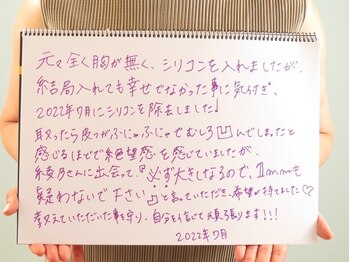 元々全く胸が無く、シリコンを入れましたが、
結局入れても幸せでなかった事に気付き、
2022年7月にシリコンを除去しました!
取ったら皮っがふにゃふにゃでむしろ凹んでしまったと
感じるほどで絶望感を感じていましたが、
さんに出会って、『必ず大きくなるので、1mmも
疑わないで下さい』と言っていただき、希望が持てました♡
教えていただいた事を守り、自分を信じて頑張ります!!!
2022年7月